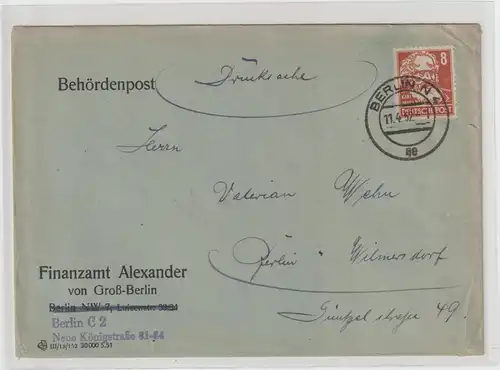 Behördenpost
Drucksache
8
DEUTSCHE POST
BERLIN N 4
11.4.52
ae
Herrn
Valerian Wehn
Berlin - Wilmersdorf
Güntzelstraße 49.
Finanzamt Alexander
von Groß-Berlin
Berlin NW 7, Luisenstr. 33/34
Berlin C 2
Neue Königstraße 61-64